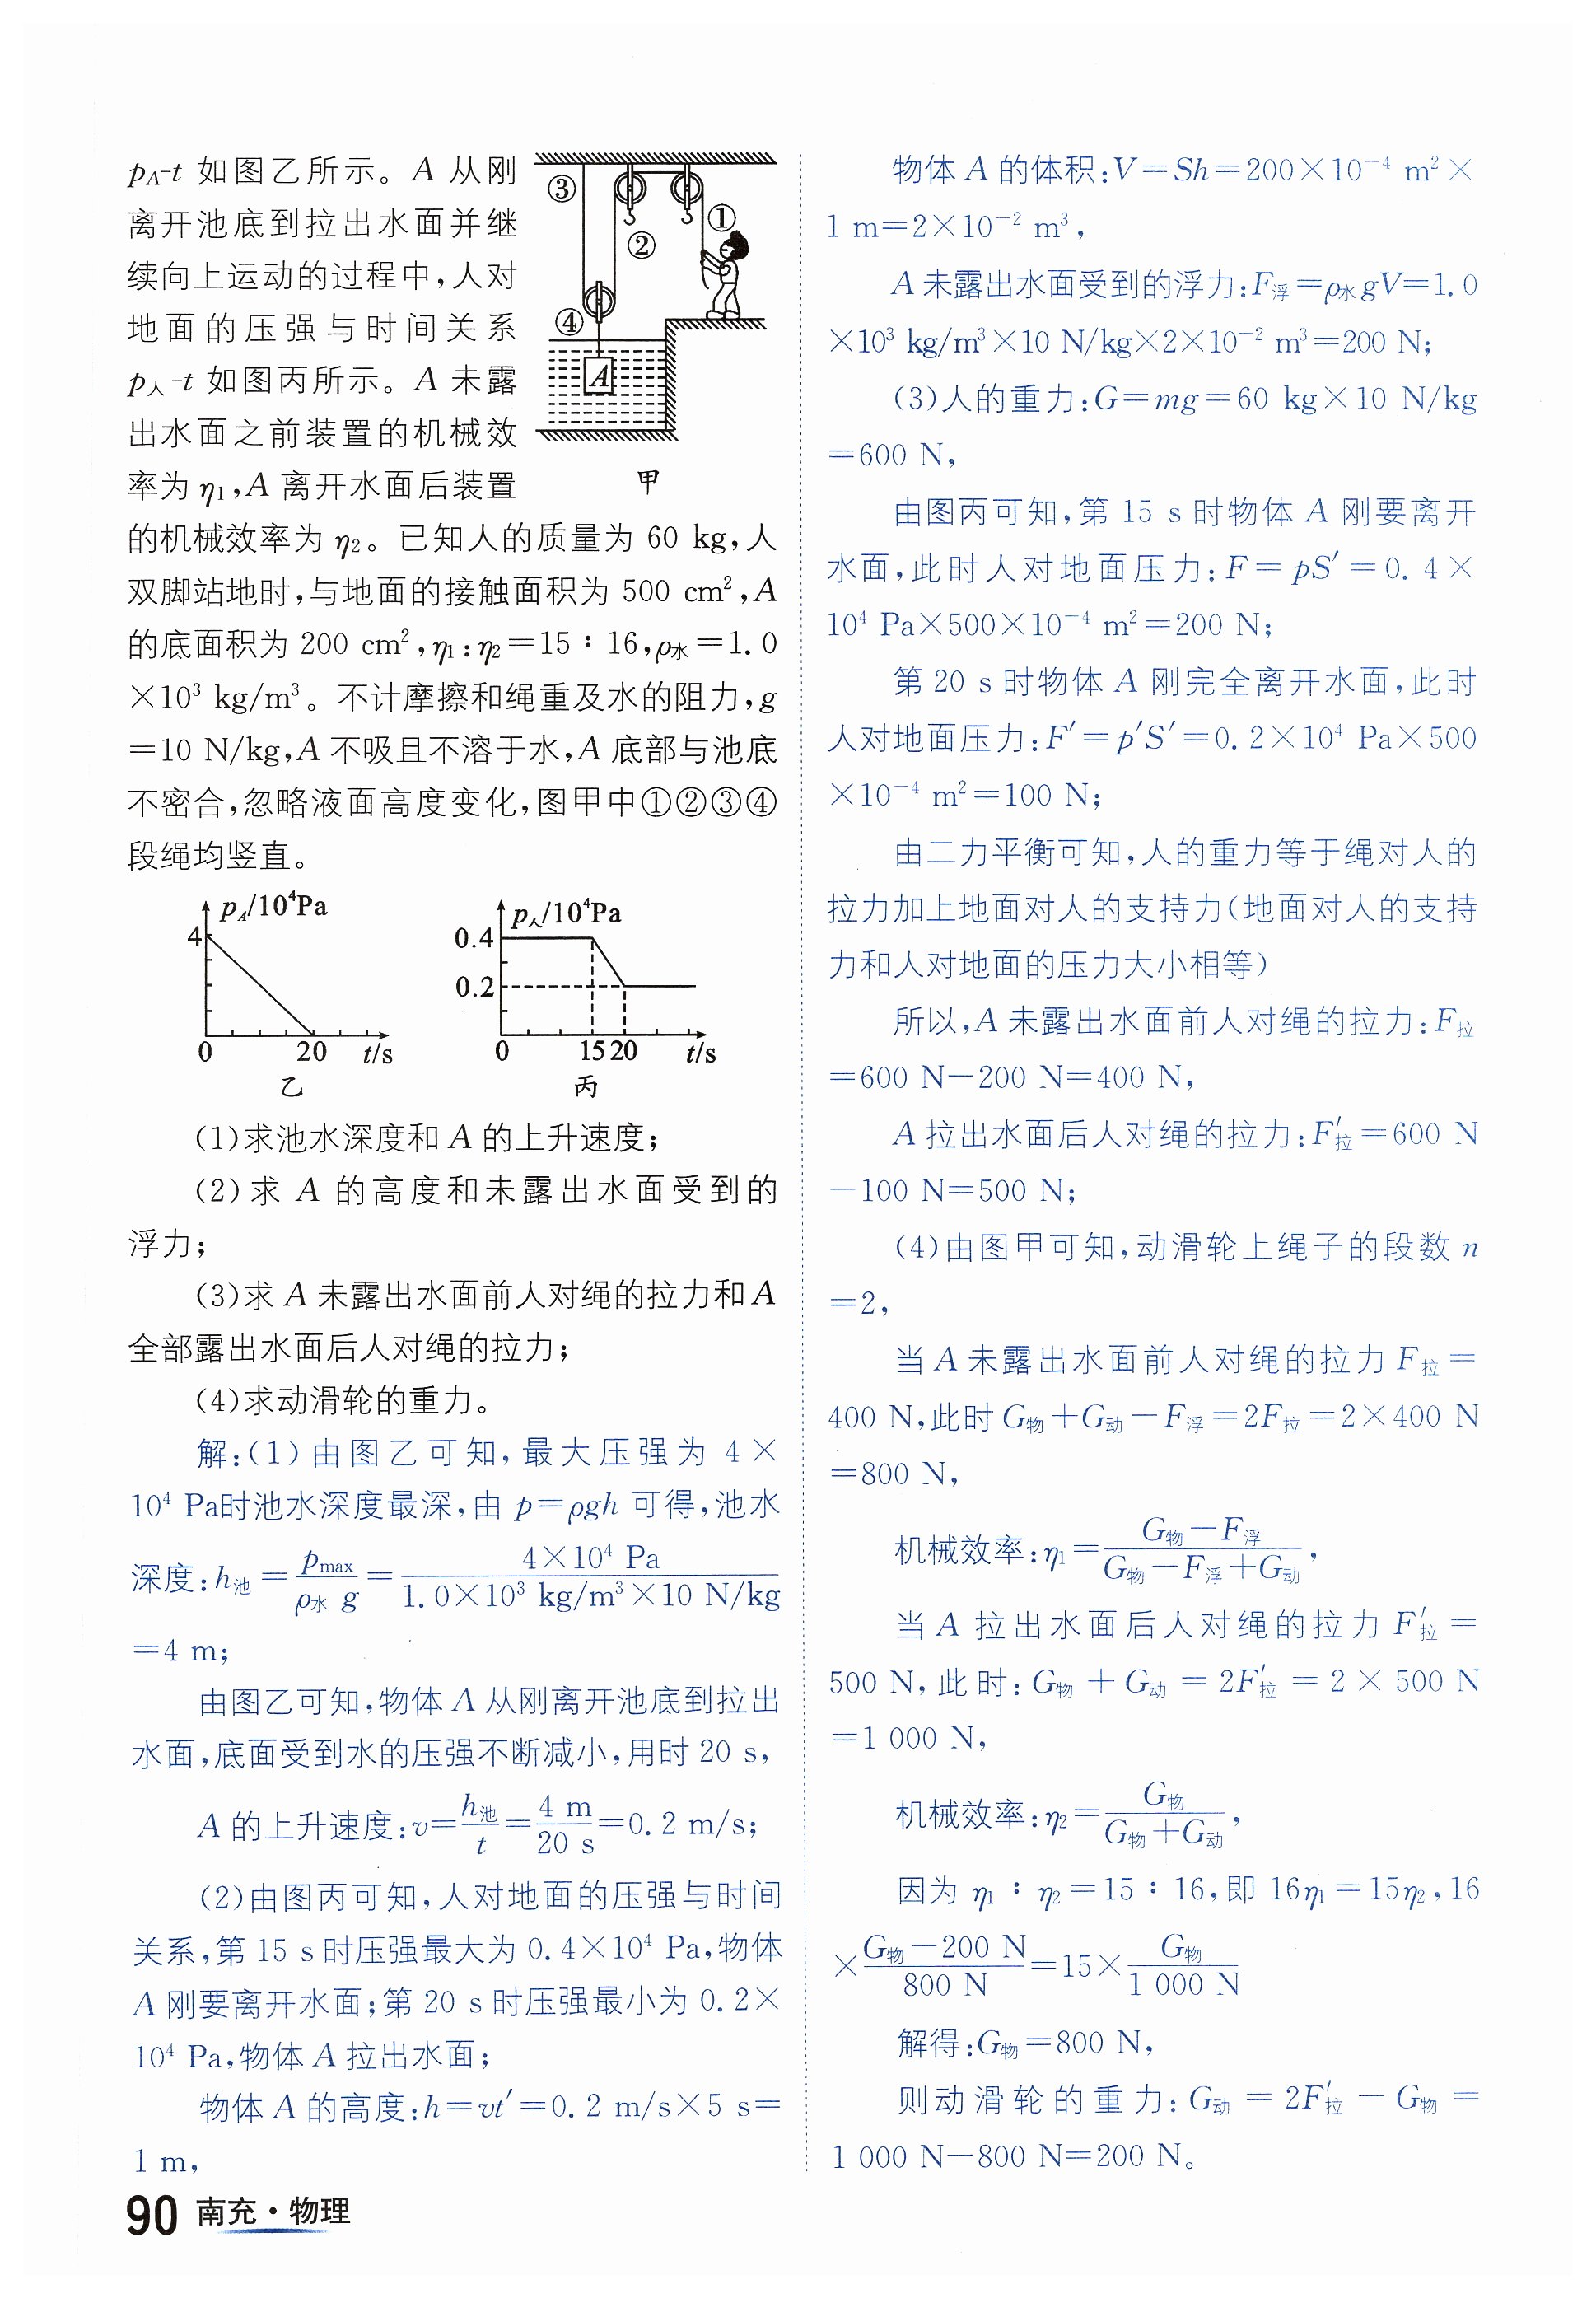 pA-t 如图乙所示。A 从刚
离开池底到拉出水面并继
续向上运动的过程中,人对
地面的压强与时间关系
p人-t 如图丙所示。A 未露
出水面之前装置的机械效
率为 η1,A 离开水面后装置
③
①
②
④
A
甲
的机械效率为 η2。已知人的质量为 60 kg,人
双脚站地时,与地面的接触面积为 500 cm²,A
的底面积为 200 cm²,η1:η2=15∶16,ρ水=1.0
×10³ kg/m³。不计摩擦和绳重及水的阻力,g
=10 N/kg,A 不吸且不溶于水,A 底部与池底
不密合,忽略液面高度变化,图甲中①②③④
段绳均竖直。
pA/10⁴Pa
4
0 20 t/s
乙
p人/10⁴Pa
0.4
0.2
0 15 20 t/s
丙
(1)求池水深度和 A 的上升速度;
(2)求 A 的高度和未露出水面受到的
浮力;
(3)求 A 未露出水面前人对绳的拉力和 A
全部露出水面后人对绳的拉力;
(4)求动滑轮的重力。
解:(1)由图乙可知,最大压强为 4×
10⁴ Pa时池水深度最深,由 p=ρgh 可得,池水
深度:h池=pmax/ρ水 g=4×10⁴ Pa/1.0×10³ kg/m³×10 N/kg
=4 m;
由图乙可知,物体 A 从刚离开池底到拉出
水面,底面受到水的压强不断减小,用时 20 s,
A 的上升速度:v=h池/t=4 m/20 s=0.2 m/s;
(2)由图丙可知,人对地面的压强与时间
关系,第 15 s 时压强最大为 0.4×10⁴ Pa,物体
A 刚要离开水面;第 20 s 时压强最小为 0.2×
10⁴ Pa,物体 A 拉出水面;
物体 A 的高度:h=vt′=0.2 m/s×5 s=
1 m,
90 南充·物理
物体 A 的体积:V=Sh=200×10⁻⁴ m²×
1 m=2×10⁻² m³,
A 未露出水面受到的浮力:F浮=ρ水gV=1.0
×10³ kg/m³×10 N/kg×2×10⁻² m³=200 N;
(3)人的重力:G=mg=60 kg×10 N/kg
=600 N,
由图丙可知,第 15 s 时物体 A 刚要离开
水面,此时人对地面压力:F=pS′=0.4×
10⁴ Pa×500×10⁻⁴ m²=200 N;
第 20 s 时物体 A 刚完全离开水面,此时
人对地面压力:F′=p′S′=0.2×10⁴ Pa×500
×10⁻⁴ m²=100 N;
由二力平衡可知,人的重力等于绳对人的
拉力加上地面对人的支持力(地面对人的支持
力和人对地面的压力大小相等)
所以,A 未露出水面前人对绳的拉力:F拉
=600 N-200 N=400 N,
A 拉出水面后人对绳的拉力:F′拉=600 N
-100 N=500 N;
(4)由图甲可知,动滑轮上绳子的段数 n
=2,
当 A 未露出水面前人对绳的拉力 F拉=
400 N,此时 G物+G动-F浮=2F拉=2×400 N
=800 N,
机械效率:η1=G物-F浮/G物-F浮+G动,
当 A 拉出水面后人对绳的拉力 F′拉=
500 N,此时:G物+G动=2F′拉=2×500 N
=1 000 N,
机械效率:η2=G物/G物+G动,
因为 η1∶η2=15∶16,即 16η1=15η2,16
×G物-200 N/800 N=15×G物/1 000 N
解得:G物=800 N,
则动滑轮的重力:G动=2F′拉-G物=
1 000 N-800 N=200 N。